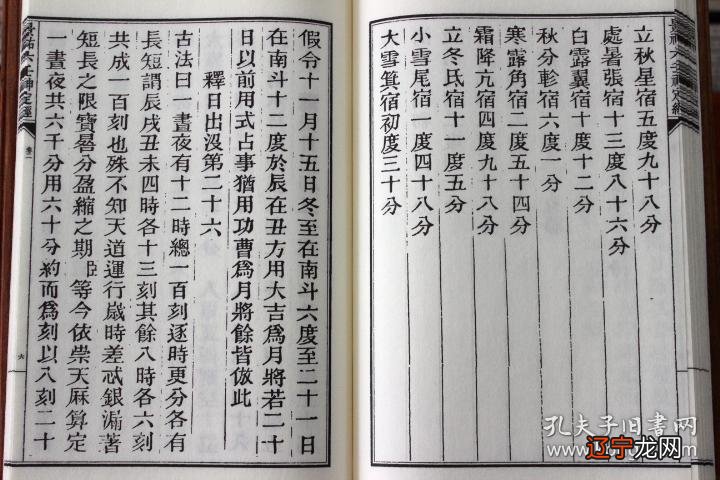 景祐六壬神定經
立秋星宿五度九十八分
處暑張宿十三度八十六分
白露翼宿十度十二分
秋分軫宿六度一分
寒露角宿二度五十四分
霜降亢宿四度九十八分
立冬氐宿十一度五分
小雪尾宿一度四十八分
大雪箕宿初度三十分
假令十一月十五日冬至在南斗六度至二十一日
在南斗十二度於辰在丑方用大吉爲月將若二十
日以前用式占事猶用功曹爲月將餘皆倣此
釋日出沒第二十六
古法曰一晝夜有十二時總一百刻逐時更分各有
長短謂辰戌丑未四時各十三刻其餘八時各六刻
共成一百刻也殊不知天道運行歲時差忒銀漏著
短長之限寶晷分盈縮之期臣等今依崇天厤算定
一晝夜共六千分用六十分約而爲刻以八刻二十
景祐六壬神定經
卷一
六
孔夫子旧書网
辽宁龙网